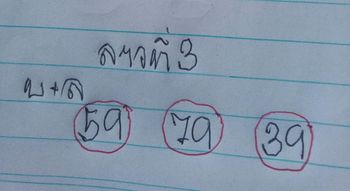 ลาวที่ 3
บ+ล
59 79 39